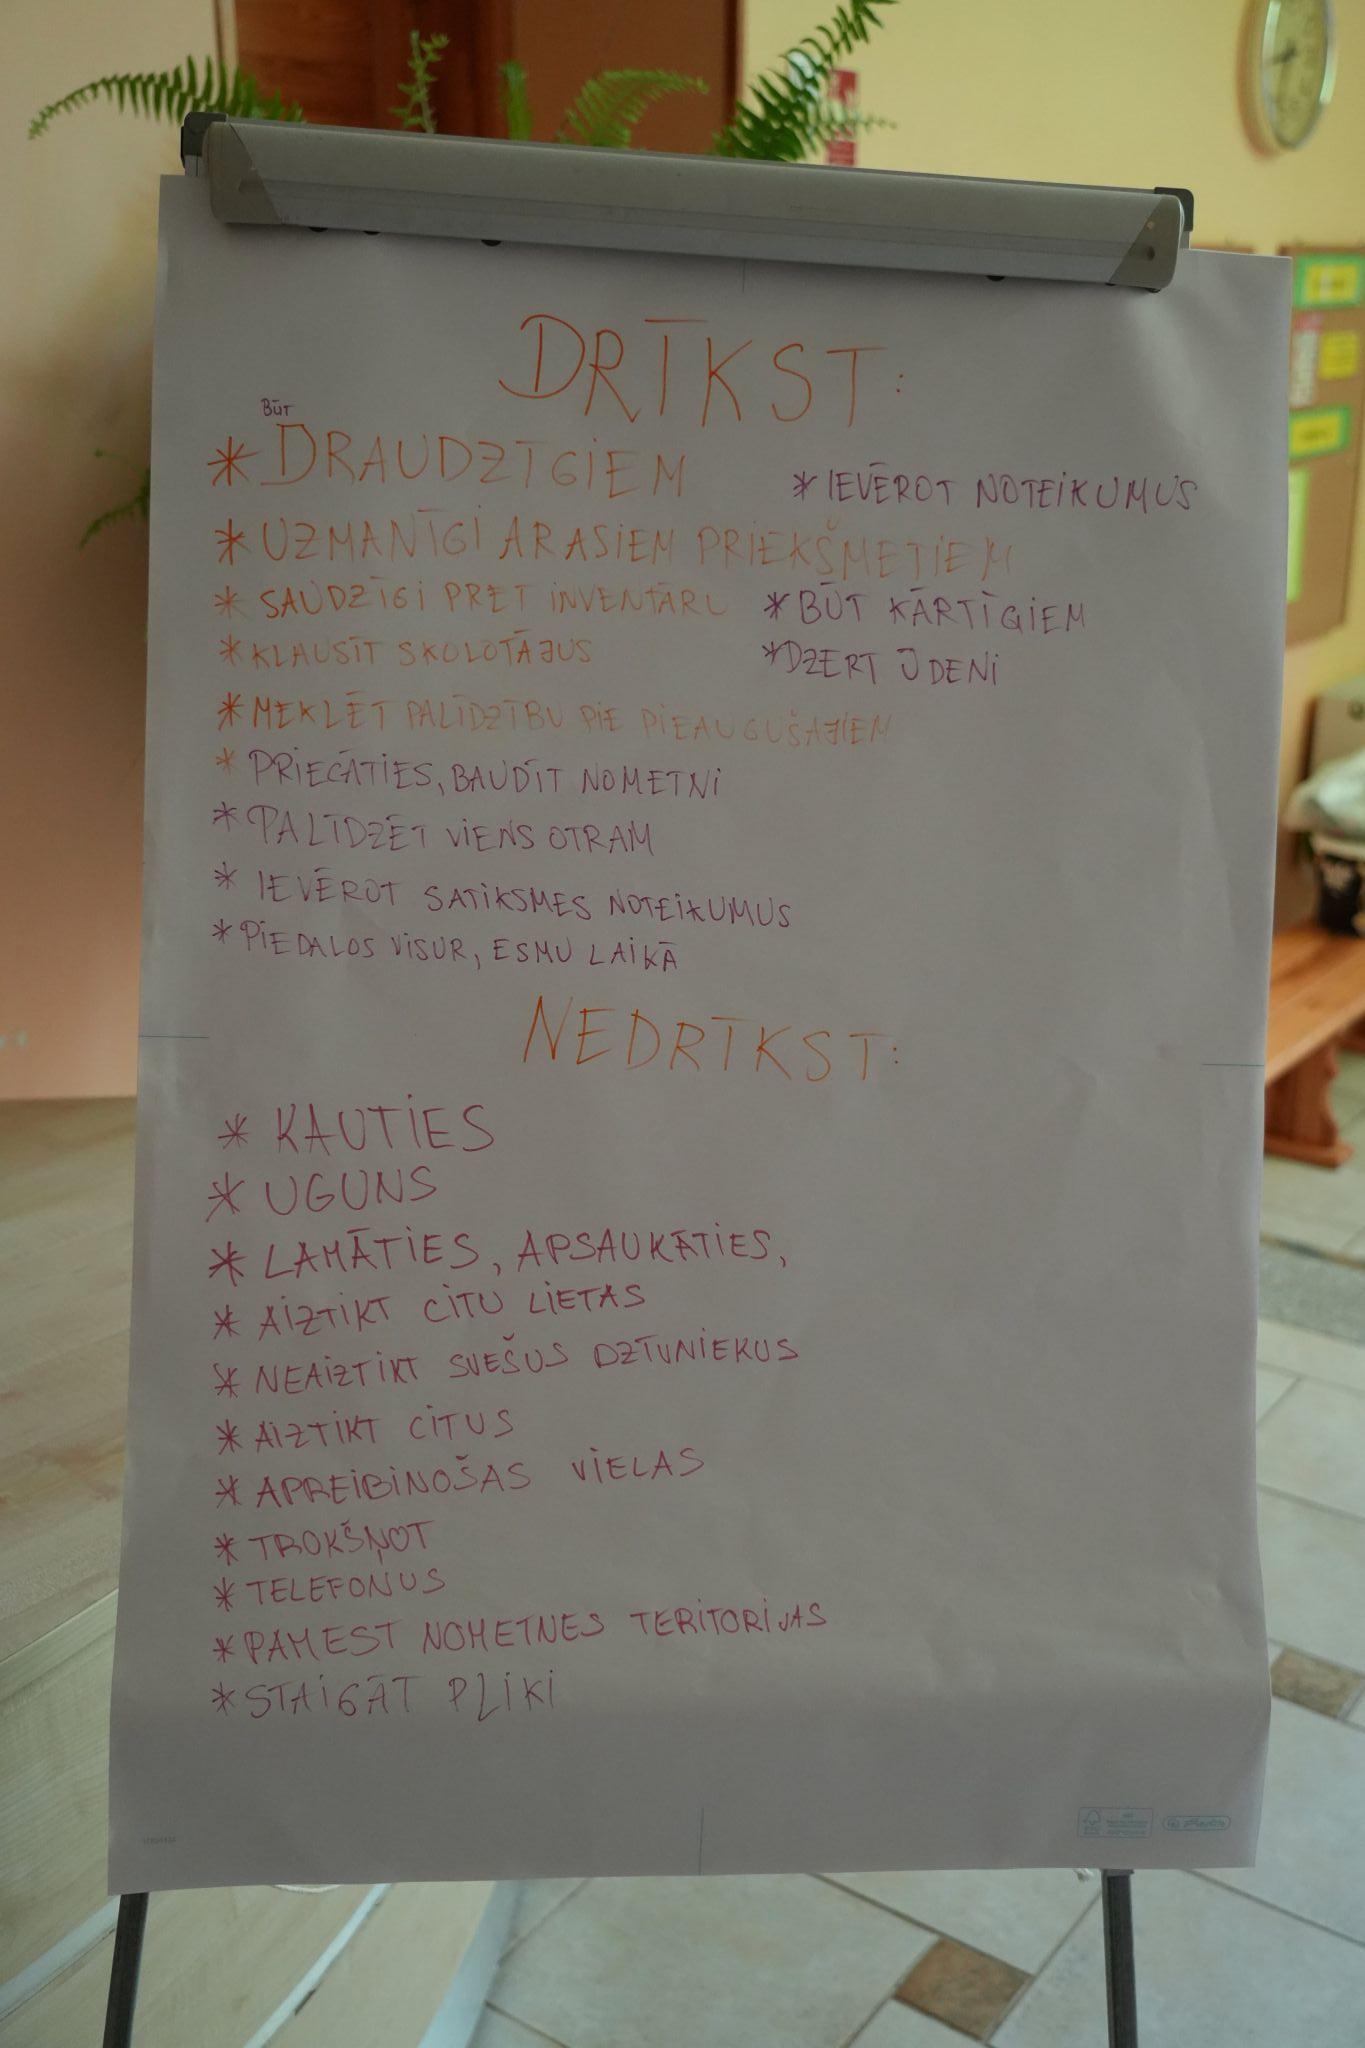 DRĪKST:
BŪT
* DRAUDZĪGIEM
* IEVĒROT NOTEIKUMUS
* UZMANĪGI AR ASIEM PRIEKŠMETIEM
* SAUDZĪGI PRET INVENTĀRU
* BŪT KĀRTĪGIEM
* KLAUSĪT SKOLOTĀJUS
* DZERT ŪDENI
* MEKLĒT PALĪDZĪBU PIE PIEAUGUŠAJIEM
* PRIECĀTIES, BAUDĪT NOMETNI
* PALĪDZĒT VIENS OTRAM
* IEVĒROT SATIKSMES NOTEIKUMUS
* PIEDALOS VISUR, ESMU LAIKĀ
NEDRĪKST:
* KAUTIES
* UGUNS
* LAMĀTIES, APSAUKĀTIES,
* AIZTIKT CITU LIETAS
* NEAIZTIKT SVEŠUS DZĪVNIEKUS
* AIZTIKT CITUS
* APREIBINOŠAS VIELAS
* TROKŠŅOT
* TELEFONUS
* PAMEST NOMETNES TERITORIJAS
* STAIGĀT PLIKI